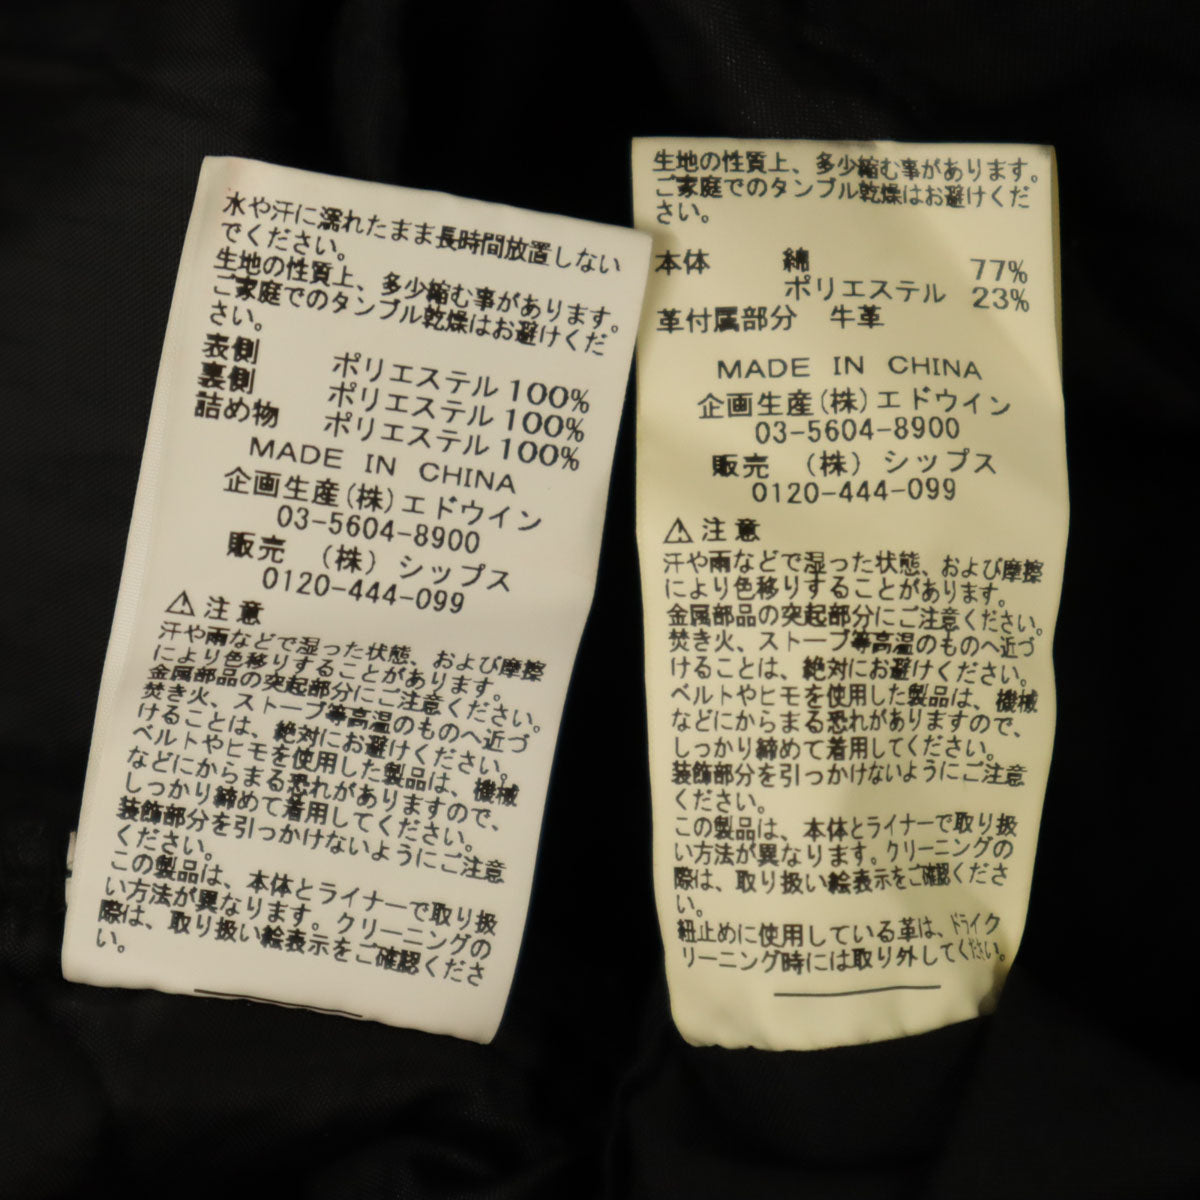 水や汗に濡れたまま長時間放置しない
でください。
生地の性質上、多少縮む事があります。
ご家庭でのタンブル乾燥はお避けくだ
さい。
表側 ポリエステル 100%
裏側 ポリエステル 100%
詰め物 ポリエステル 100%
MADE IN CHINA
企画生産(株)エドウイン
03-5604-8900
販売 (株) シップス
0120-444-099
⚠注意
汗や雨などで湿った状態、および摩擦
により色移りすることがあります。
金属部品の突起部分にご注意ください。
焚き火、ストーブ等高温のものへ近づ
けることは、絶対にお避けください。
ベルトやヒモを使用した製品は、機械
などにからまる恐れがありますので、
しっかり締めて着用してください。
装飾部分を引っかけないようにご注意
ください。
この製品は、本体とライナーで取り扱
い方法が異なります。クリーニングの
際は、取り扱い絵表示をご確認くださ
い。
生地の性質上、多少縮む事があります。
ご家庭でのタンブル乾燥はお避けくだ
さい。
本体 綿 77%
ポリエステル 23%
革付属部分 牛革
MADE IN CHINA
企画生産(株)エドウイン
03-5604-8900
販売 (株) シップス
0120-444-099
⚠注意
汗や雨などで湿った状態、および摩擦
により色移りすることがあります。
金属部品の突起部分にご注意ください。
焚き火、ストーブ等高温のものへ近づ
けることは、絶対にお避けください。
ベルトやヒモを使用した製品は、機械
などにからまる恐れがありますので、
しっかり締めて着用してください。
装飾部分を引っかけないようにご注意
ください。
この製品は、本体とライナーで取り扱
い方法が異なります。クリーニングの
際は、取り扱い絵表示をご確認くださ
い。
紐止めに使用している革は、ドライク
リーニング時には取り外してください。